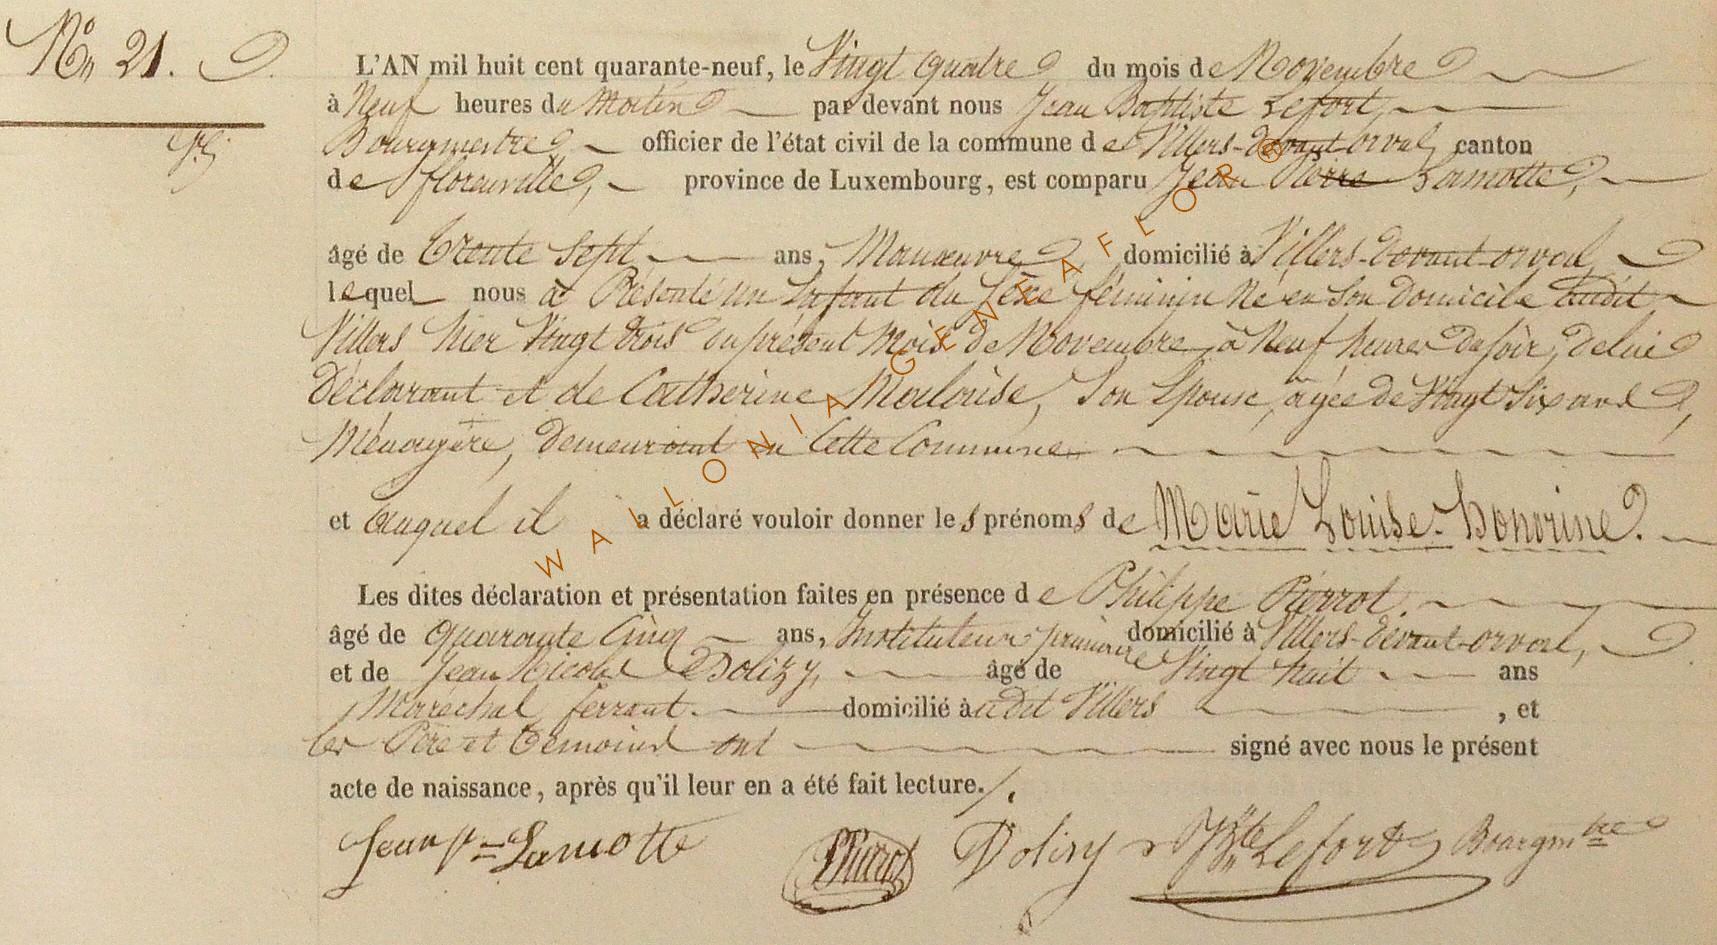 No 21.
L'AN mil huit cent quarante-neuf, le Vingt quatre du mois de Novembre
à Neuf heures du Matin par devant nous Jean Baptiste Lefort,
Bourgmestre officier de l'état civil de la commune de Villers-devant orval, canton
de florenville, province de Luxembourg, est comparu Jean Pierre Lamotte,
âgé de trente Sept ans, Manœuvre domicilié à Villers-devant-orval,
lequel nous a Présenté un Enfant du Sexe féminin Né en Son Domicile audit
Villers hier Vingt trois du présent Mois de Novembre, à Neuf heures du soir, de lui
Déclarant et de Catherine Malouise, Son Epouse, agée de Vingt Six ans,
Ménagère, demeurant en Cette Commune
et auquel il a déclaré vouloir donner les prénoms de Marie Louise-Honorine.
Les dites déclaration et présentation faites en présence de Philippe Pierrot.
âgé de quarante Cinq ans, Instituteur primaire domicilié à Villers-devant-orval,
et de Jean Nicolas Dolizy, âgé de Vingt huit ans
Maréchal ferrant. domicilié audit Villers, et
les Père et témoins ont signé avec nous le présent
acte de naissance, après qu'il leur en a été fait lecture./.
Jean Pre Lamotte Pierrot Dolizy JBte Lefort Bourgmtre
WALLONIA GENEAFLOR ®